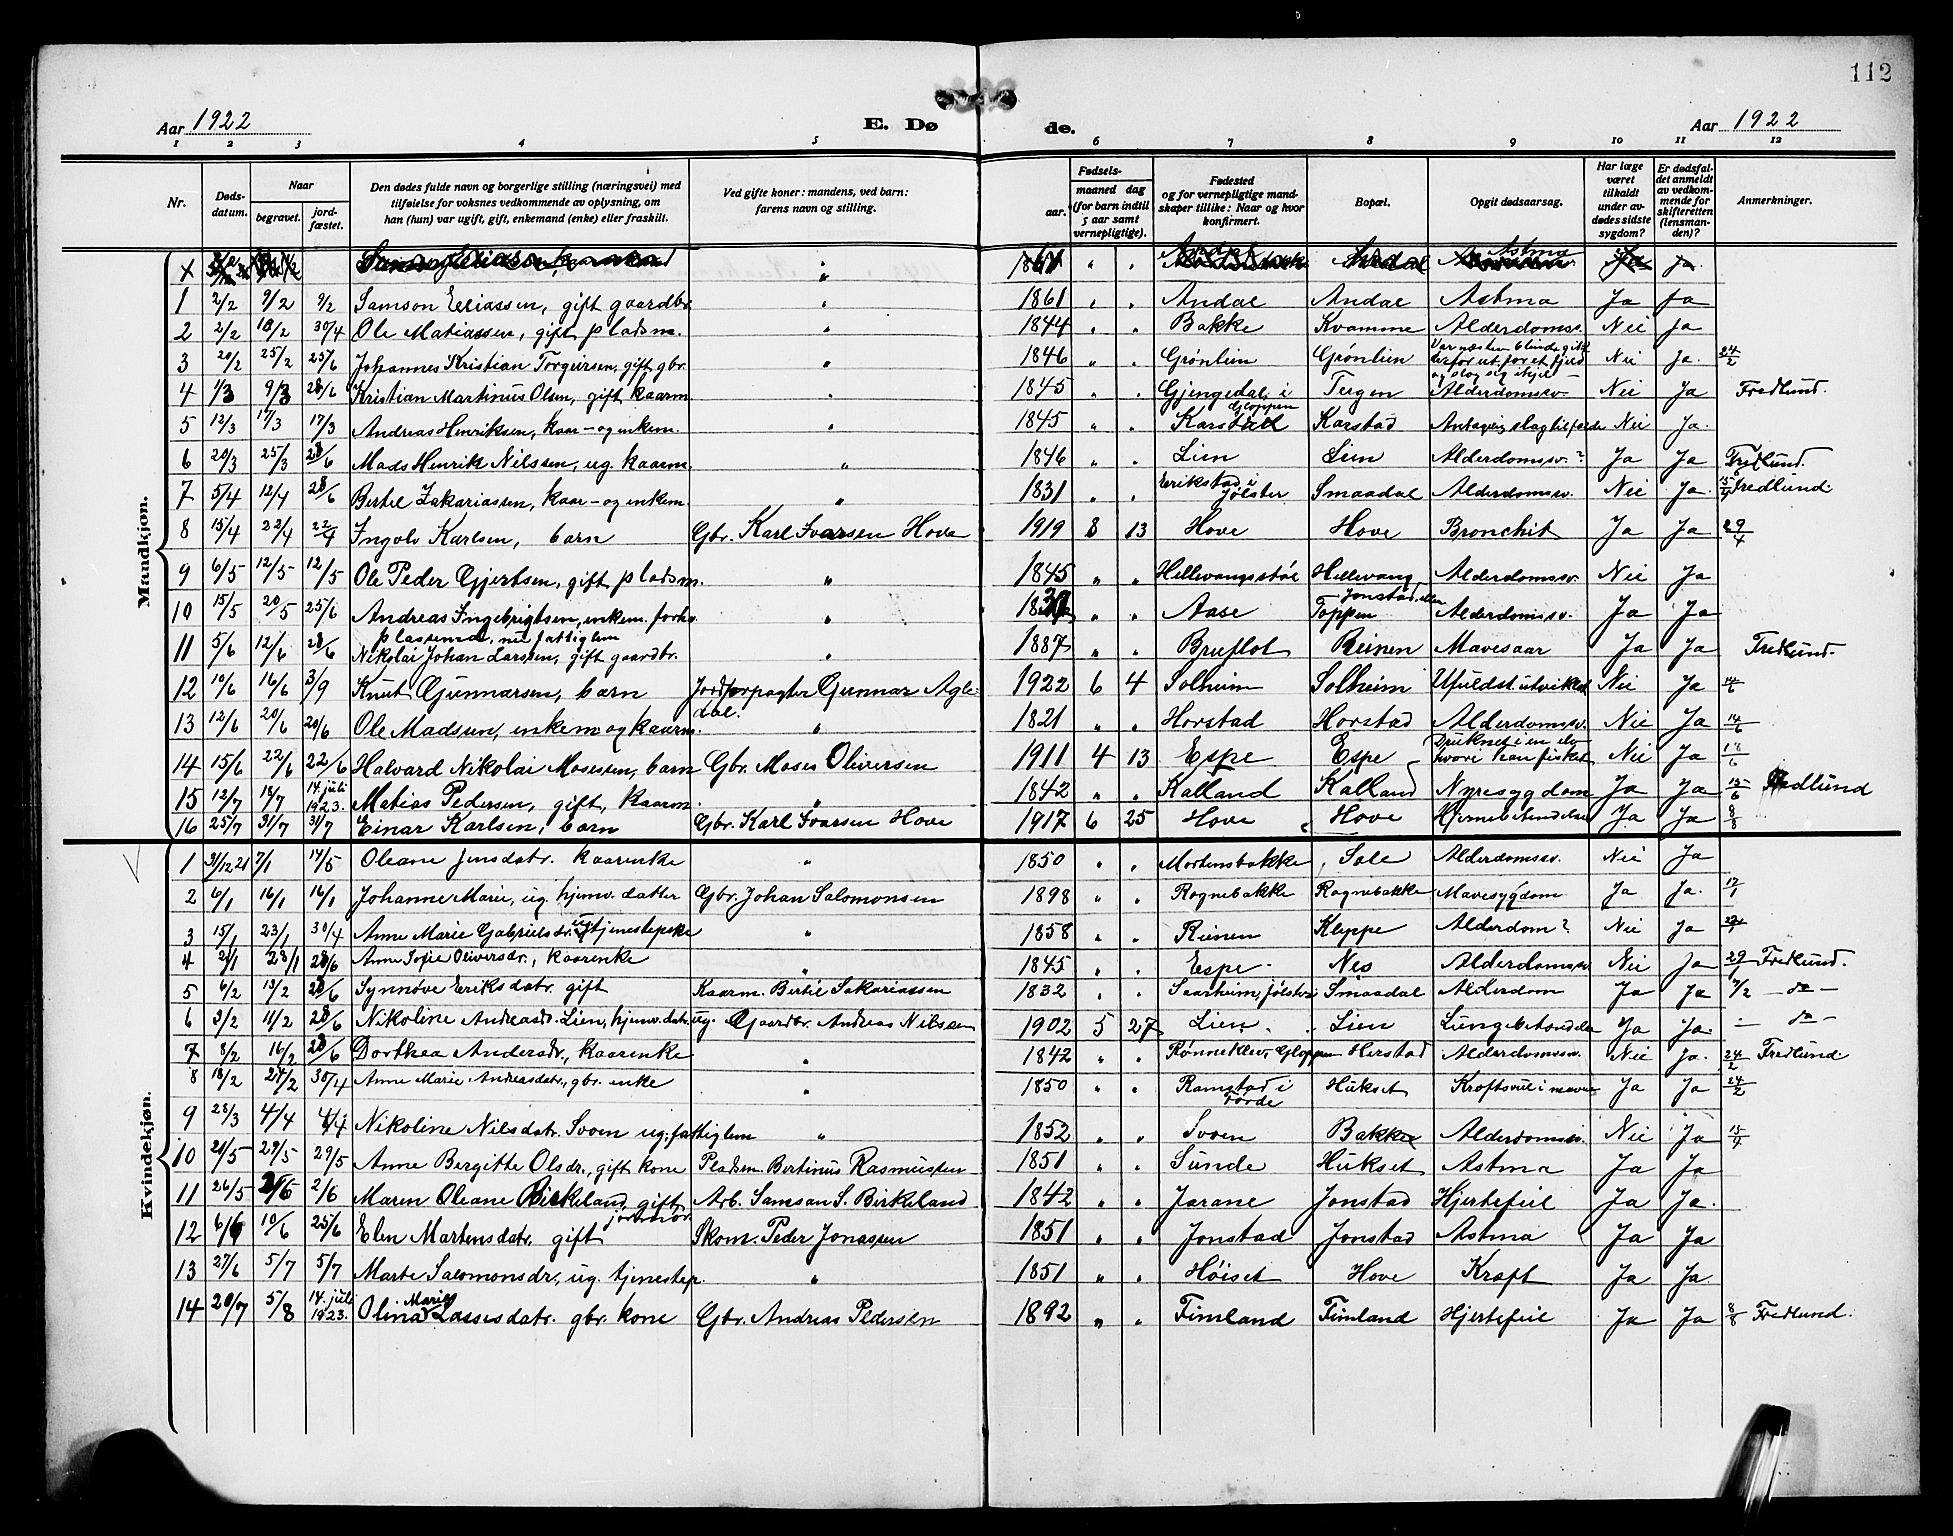 112
Aar 1922
E. Dø
de.
Aar 1922
1 2 3 4 5 6 7 8 9 10 11 12
Nr.
Døds-
datum.
Naar
begravet.
jord-
fæstet.
Den dødes fulde navn og borgerlige stilling (næringsvei) med
tilføielse for voksnes vedkommende av oplysning, om
han (hun) var ugift, gift, enkemand (enke) eller fraskilt.
Ved gifte koner: mandens, ved barn:
farens navn og stilling.
Fødsels-
aar.
maaned dag
(for barn indtil
5 aar samt
vernepligtige).
Fødested
og for vernepligtige mand-
skaper tillike: Naar og hvor
konfirmert.
Bopæl.
Opgit dødsaarsag.
Har læge
været
tilkaldt
under av-
dødes sidste
sygdom?
Er dødsfal-
det anmeldt
av vedkom-
mende for
skifteretten
(lensman-
den)?
Anmerkninger.
Mandkjøn.
1 2/2 9/2 9/2 Samson Eliassen, gift gaardbr. " 1861 " " Andal Andal Astma Ja Ja
2 2/2 18/2 30/4 Ole Matiassen, gift pladsm. " 1844 " " Bakke Kvamme Alderdomssv. Nei Ja
3 20/2 25/2 25/6 Johannes Kristian Torgersen, gift gbr. " 1846 " " Grønlien Grønlien Var næsten blind, gik utfor et fjeld og slog sig ihjel Nei Ja. 24/2
4 1/3 9/3 28/6 Kristian Martinus Olsen, gift kaarm " 1845 " " Gjengedal i Gloppen Tergen Alderdomssv. Nei Ja Fredlund.
5 12/3 17/3 17/3 Andreas Henriksen, kaar- og enkem. " 1845 " " Karstad Karstad slagtilfælde Nei Ja.
6 20/3 25/3 28/6 Mads Henrik Nilssen, ug. kaarm. " 1846 " " Lien Lien Alderdomssv.? Ja Ja Fredlund.
7 5/4 12/4 28/6 Bertel Zakariassen, kaar- og enkem. " 1831 " " Erikstad i Jølster Smaadal Alderdomssv. Nei Ja. Fredlund
8 15/4 22/4 22/4 Ingolv Karlsen, barn Gbr. Karl Ivarsen Hove 1919 8 13 Hove Hove Bronchit Ja Ja 29/4
9 6/5 12/5 12/5 Ole Peder Gjertsen, gift pladsm. " 1845 " " Hellevangsstøl Hellevang Alderdomssv. Nei Ja
10 15/5 20/5 25/6 Andreas Ingebrigtsen, enkem. forhv. plassemd., nu fattiglem " " " Aase Jonstad, eller Toppen Alderdomssv. Ja Ja
11 5/6 12/6 28/6 Nikolai Johan Larssen, gift gaardbr. " 1887 " " Bruflot Reinen Mavesaar Ja Ja Fredlund.
12 10/6 16/6 3/9 Knut Gunnarsen, barn Jordforpagter Gunnar Agledal. 1922 6 4 Solheim Solheim Ufuldst. utviklet Nei Ja 14/6
13 12/6 20/6 20/6 Ole Madsen, enkem og kaarm. " 1821 " " Horstad Horstad Alderdomssv. Nei Ja 14/6
14 15/6 22/6 22/6 Halvard Nikolai Mosessen, barn Gbr. Moses Oliversen 1911 4 13 Espe Espe Druknet i en elv hvori han fisket Nei Ja
15 12/7 18/7 14. juli 1923. Matias Pedersen, gift, kaarm. " 1842 " " Kalland Kalland Nyresygdom Ja Ja Fredlund
16 25/7 31/7 31/7 Einar Karlsen, barn Gbr. Karl Ivarsen Hove 1917 6 25 Hove Hove Hjernebetændelse Ja Ja 8/8
Kvindekjøn.
1 31/12 21 7/1 14/5 Oleane Jensdatr. kaarenke " 1850 " " Mortensbakke Sole Alderdomssv. Nei Ja
2 6/1 16/1 16/1 Johanne Marie, ug. hjemv. datter Gbr. Johan Salomonsen 1898 " " Rognebakke Rognebakke Mavesygdom Ja Ja. 17/1
3 15/1 23/1 30/4 Anne Marie Gabrielsdr. ug tjenestepike " 1858 " " Reinen Kleppe Alderdom? Nei Ja
4 21/1 28/1 28/6 Anne Sofie Oliversdr., kaarenke " 1845 " " Espe Nes Alderdomssv. Nei Ja Fredlund.
5 6/2 13/2 28/6 Synnøve Eriksdatr. gift Kaarm. Bertil Sakariassen 1832 " " Saarheim, Jølster Smaadal Alderdom Ja Ja 7/2 - do -
6 3/2 11/2 28/6 Nikoline Andreasdr. Lien, hjemv. datr. ug. Gaardbr. Andreas Nilssen 1902 5 27 Lien Lien Lungebetændelse Ja Ja - do -
7 8/2 16/2 28/6 Dorthea Andersdr., kaarenke " 1842 " " Rønneklev, Gloppen Herstad Alderdomssv. Nei Ja. 24/2 Fredlund
8 18/2 27/2 30/4 Anne Marie Andreasdatr., gbr. enke " 1850 " " Ramstad i Førde Hukset Kræftsvul i maven Ja Ja 24/2
9 28/3 4/4 4/4 Nikoline Nilsdatr. Svoen ug. fattiglem " 1852 " " Svoen Bakke Alderdomssv. Nei Ja
10 21/5 29/5 29/5 Anne Bergitte Olsdr., gift kone Pladsm. Bertinus Rasmussen 1851 " " Sunde Hukset Astma Ja Ja
11 26/5 2/6 2/6 Maren Oleane Birkeland, gift jordmor. Arb. Samson S. Birkeland 1842 " " Jarane Jonstad Hjertefeil Ja Ja.
12 6/6 10/6 25/6 Elen Martensdatr. gift Skom. Peder Jonassen 1851 " " Jonstad Jonstad Astma Ja Ja
13 27/6 5/7 5/7 Marte Salomonsdr., ug. tjenestep. " 1851 " " Høiset Hove Kræft Ja Ja
14 20/7 5/8 14. juli 1923. Olina Marie Lassesdatr. gbr. kone Gbr. Andreas Pedersen 1892 " " Fimland Fimland Hjertefeil Ja Ja 8/8 Fredlund.